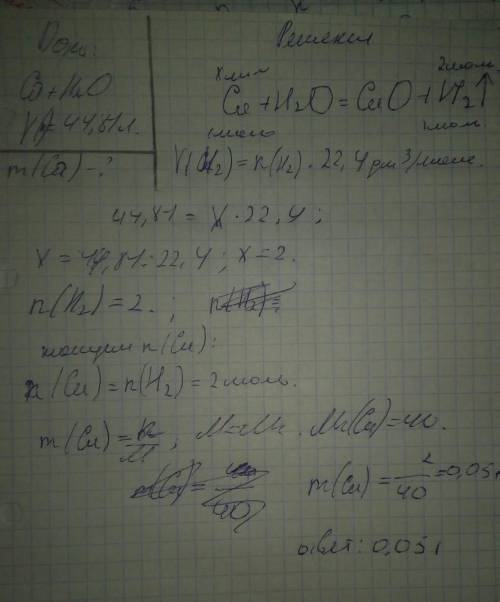 Дано:
Решение
Ca + H2O
V = 44,81л.
m(Ca) - ?
x моль
2 моль
Ca + H2O = CaO + H2↑
1 моль
1 моль
V(H2) = n(H2) · 22,4 дм3/моль.
44,81 = x · 22,4;
x = 44,81 : 22,4; x = 2.
n(H2) = 2.;
n(Ca):
n(Ca) = n(H2) = 2 моль.
m(Ca) = n/M; M = Mr. Mr(Ca) = 40.
m(Ca) = 2/40 = 0,05г
ответ: 0,05г